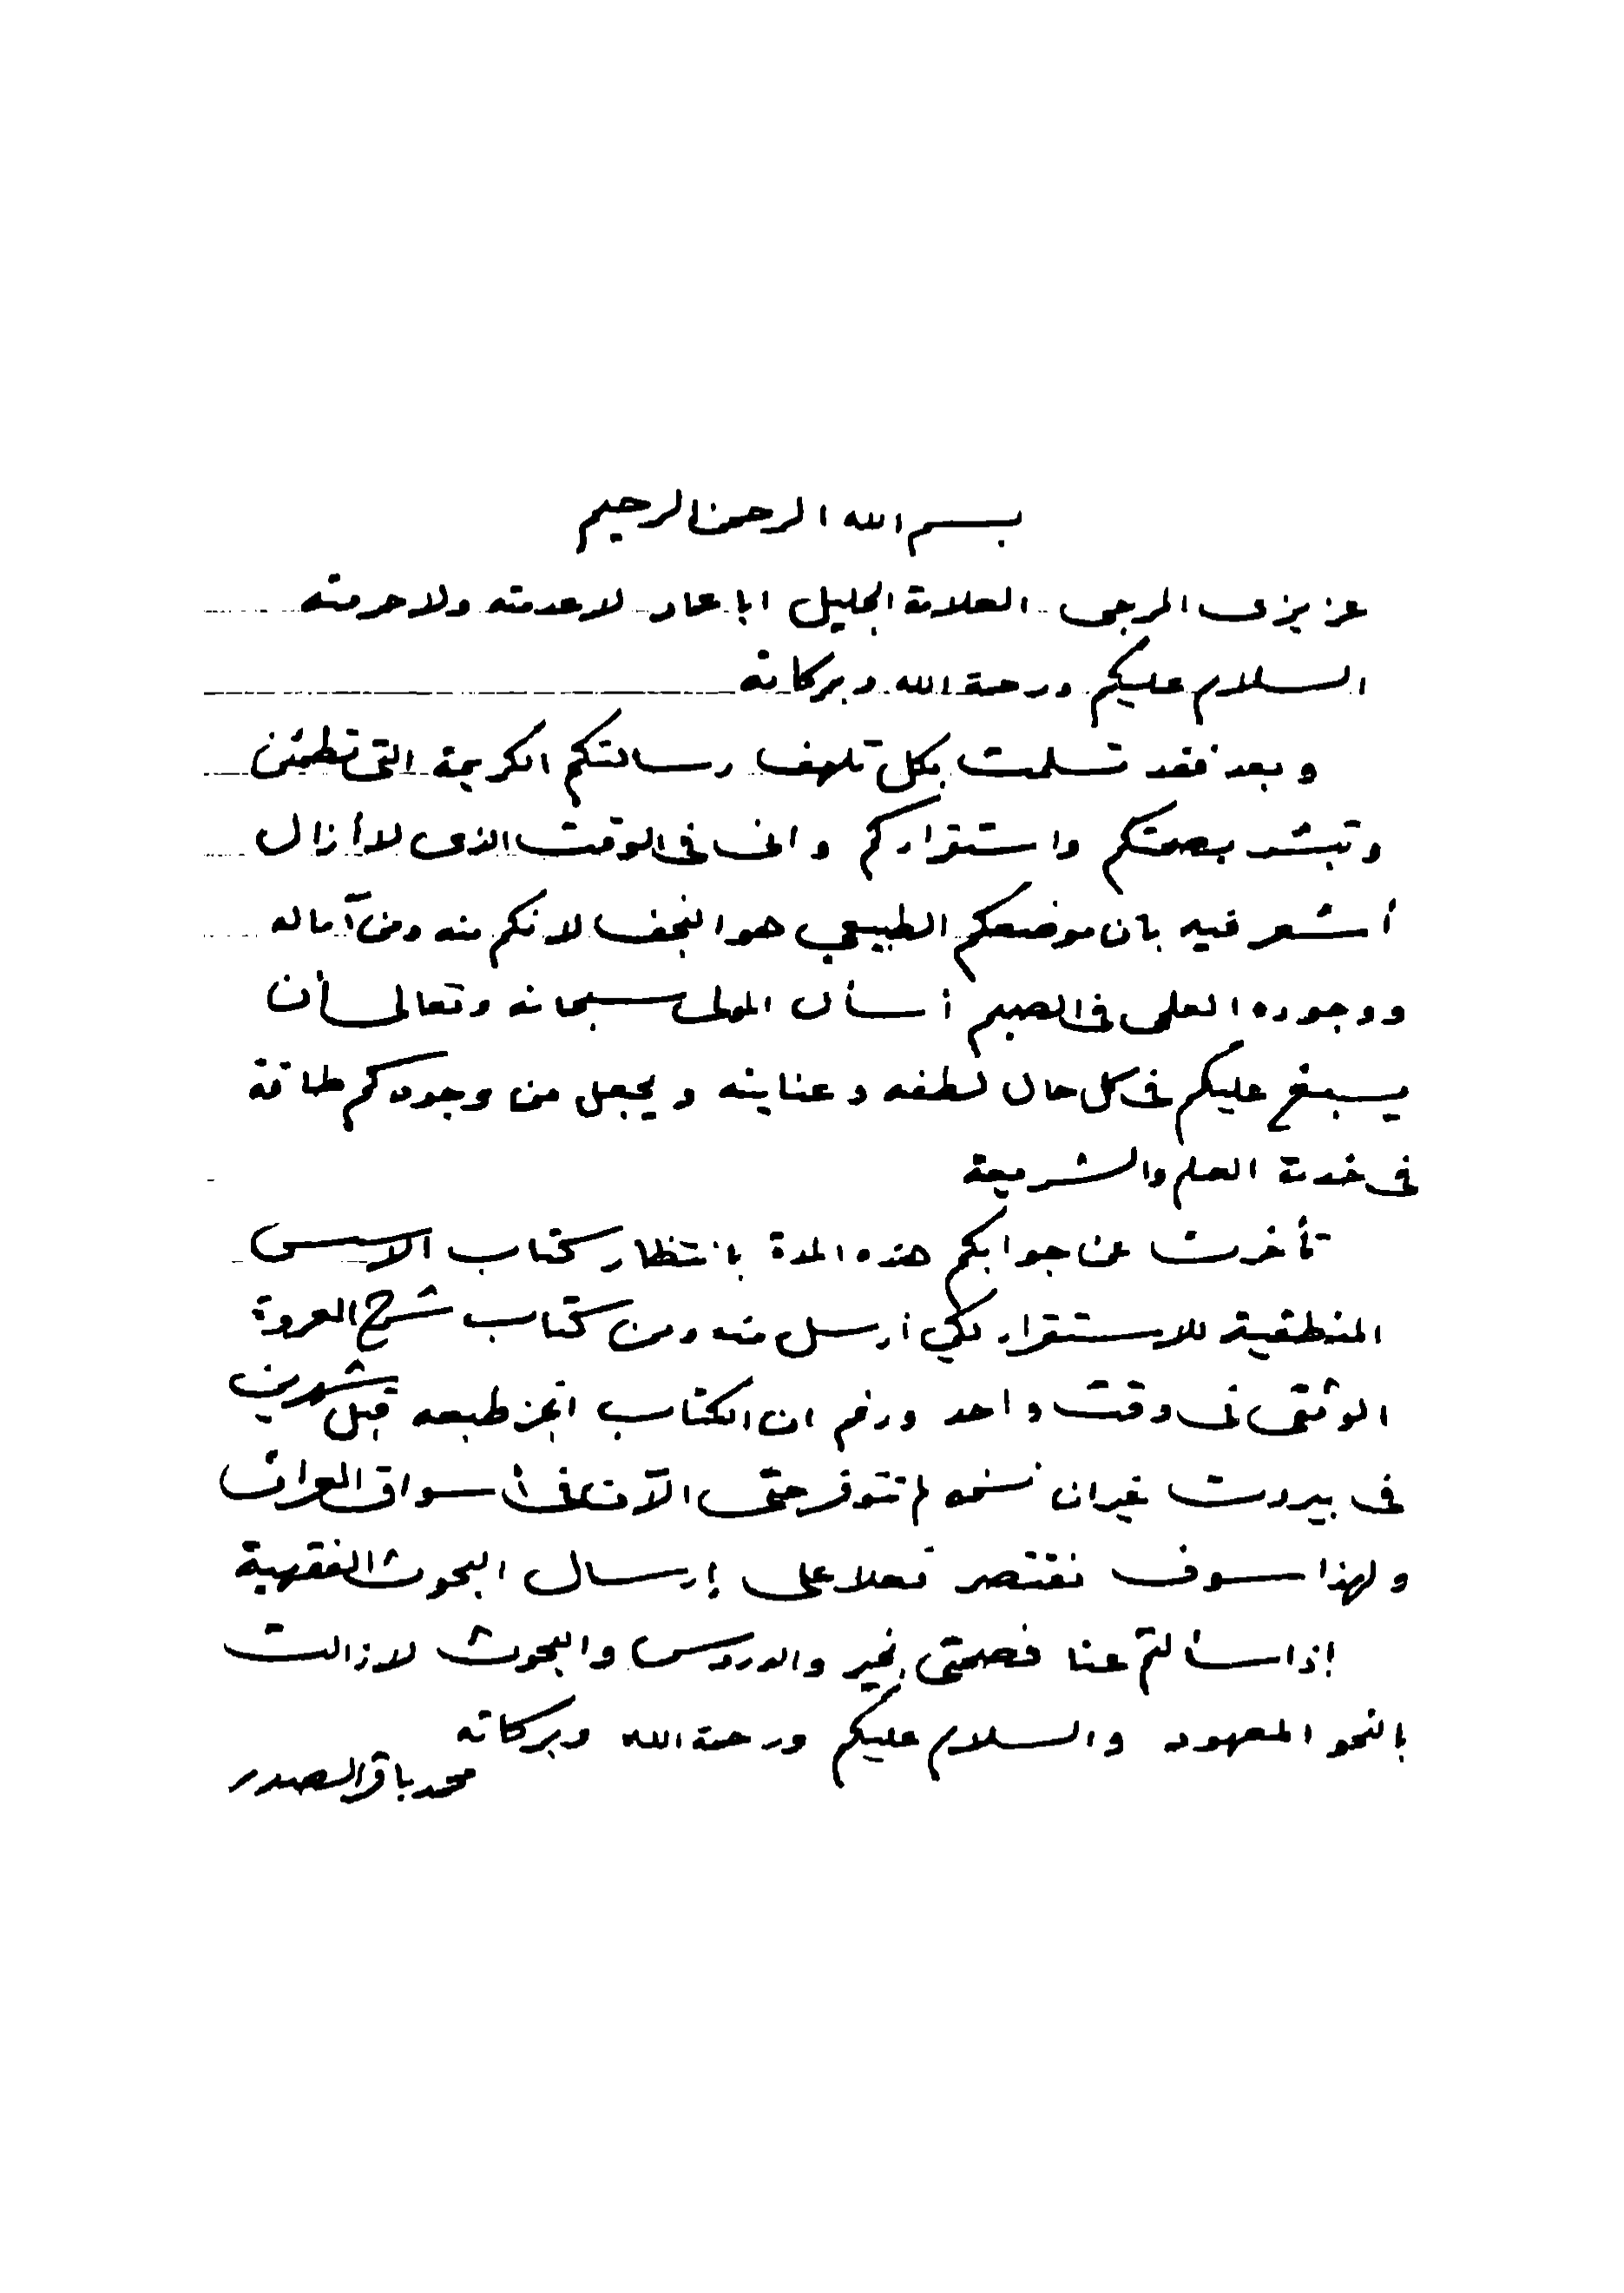 بسم الله الرحمن الرحيم
عزيزي المرجى العلامة الجليل ابا عماد لا عدمته ولا حرمته
السلام عليكم ورحمة الله وبركاته
وبعد فقد تسلمت بكل تلهف رسالتكم الكريمة التي تطمئن
وتبشر بصحتكم واستقراركم واني في الوقت الذي لا أزال
أشعر فيه بان موضعكم الطبيعي هو النجف لانكم منه ومن آماله
ووجوده العلمي في الصميم أسأل المولى سبحانه وتعالى أن
يسبغ عليكم في كل حال لطفه وعنايته ويجعل من وجودكم طاقة
في خدمة العلم والشريعة
تأخرت عن جوابكم هذه المدة بانتظار كتاب الاسس
المنطقية للاستقراء لكي أرسل منه ومن كتاب شرح العروة
الوثقى في وقت واحد ورغم ان الكتاب انجز طبعه قبل شهرين
في بيروت غير ان نسخه لم تتوفر حتى الآن في أسواق العراق
ولهذا سوف نقتصر فعلا على إرسال البحوث الفقهية
إذا سألتم عنا فصحتي بخير والدروس والبحوث لا زالت
بالنحو المعهود والسلام عليكم ورحمة الله وبركاته
محمد باقر الصدر